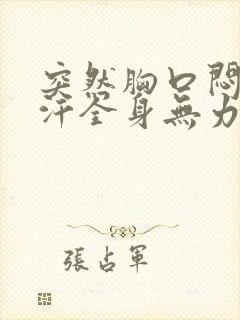 突然胸口悶
汗全身無力
張占軍